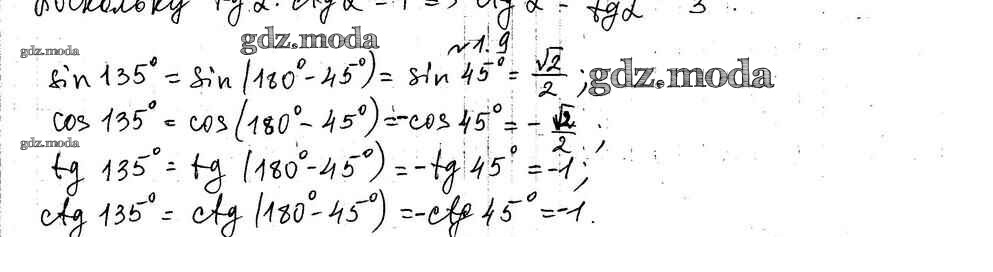 Поскольку tg 2 · ctg 2 = 1 => ctg 2 = tg2 3
gdz.moda
№1.9
gdz.moda
sin 135° = sin (180° - 45°) = sin 45° = √2/2 ;
gdz.moda
cos 135° = cos (180° - 45°) = -cos 45° = - √2/2 ;
gdz.moda
tg 135° = tg (180° - 45°) = -tg 45° = -1;
ctg 135° = ctg (180° - 45°) = -ctg 45° = -1.